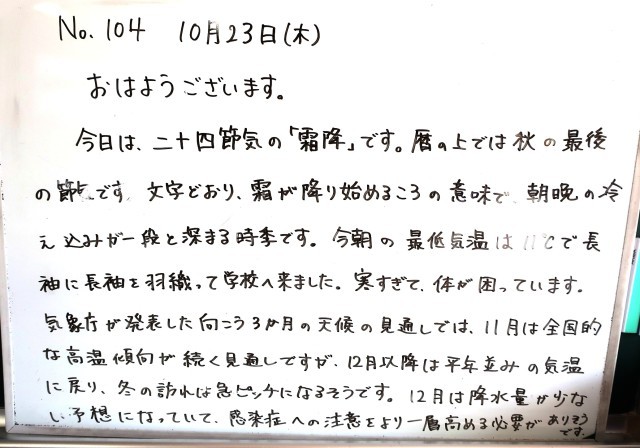 No. 104 10月23日(木)
おはようございます。
今日は、二十四節気の「霜降」です。暦の上では秋の最後
の節気です。文字どおり、霜が降り始めるころの意味で、朝晩の冷
え込みが一段と深まる時季です。今朝の最低気温は11℃で長
袖に長袖を羽織って学校へ来ました。寒すぎて、体が困っています。
気象庁が発表した向こう3か月の天候の見通しでは、11月は全国的
な高温傾向が続く見通しですが、12月以降は平年並みの気温
に戻り、冬の訪れは急ピッチになるそうです。12月は降水量が少な
い予想になっていて、感染症への注意をより一層高める必要がありそう
です。